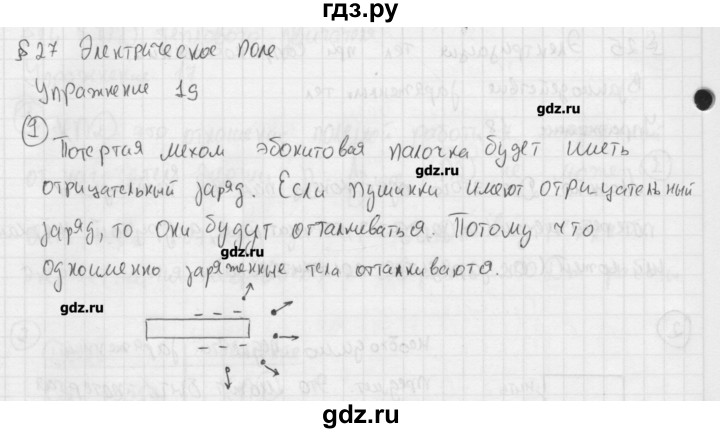 гдз.ру
§27 Электрическое поле
Упражнение 19
gdz.ru
1 Потертая мехом эбонитовая палочка будет иметь
gdz.ru
отрицательный заряд. Если пушинки имеют отрицательный
заряд, то они будут отталкиваться. Потому что
одноименно заряженные тела отталкиваются.
gdz.ru
gdz.ru
gdz.ru